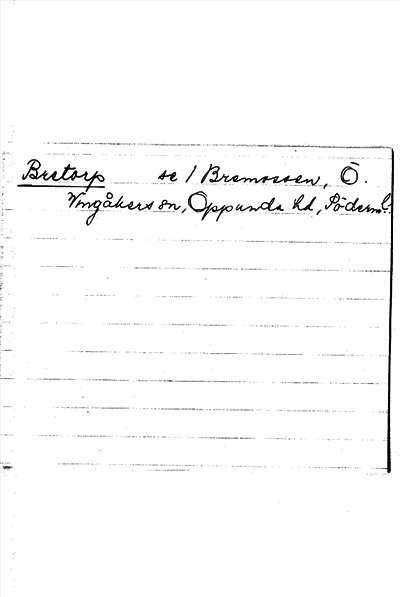 Bretorp se 1 Bremossen, Ö.
Vingåkers sn, Oppunda hd, Söderml.